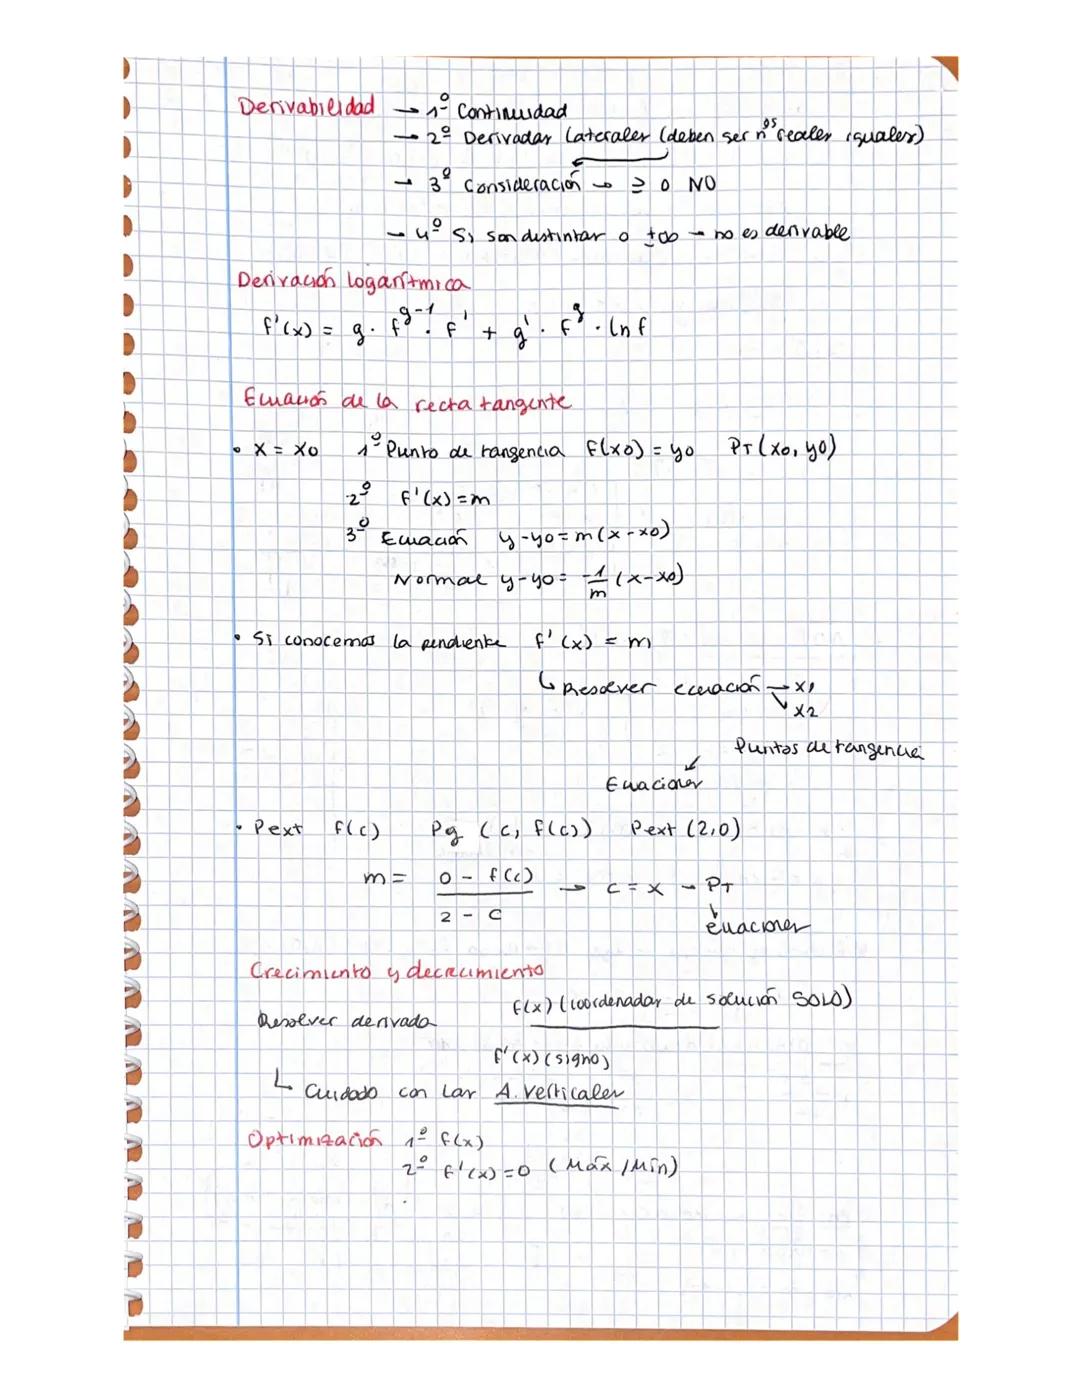 Derivabilidad → 1º Continuidad
→ 2º Derivadas laterales (deben ser nºs reales iguales)
→ 3º Consideración → ≥ 0 NO
→ 4º Si son distintas o ±∞ → no es derivable
Derivación logarítmica
f'(x) = g · f^(g-1) · f' + g' · f^g · ln f
Ecuación de la recta tangente
• x = x0 1º Punto de tangencia f(x0) = y0 PT (x0, y0)
2º f'(x) = m
3º Ecuación y - y0 = m (x - x0)
Normal y - y0 = -1/m (x - x0)
• Si conocemos la pendiente f'(x) = m
↳ Resolver ecuación → x1
↘ x2
Puntos de tangencia
↙
Ecuaciones
• Pext f(c) Pg (c, f(c)) Pext (2,0)
m = (0 - f(c)) / (2 - c) → c = x → PT
↓
ecuaciones
Crecimiento y decrecimiento
f(x) (coordenadas de solución SOLO)
Resolver derivada
f'(x) (signo)
↳ Cuidado con las A. verticales
Optimización 1º f(x)
2º f'(x) = 0 (Máx / Mín)